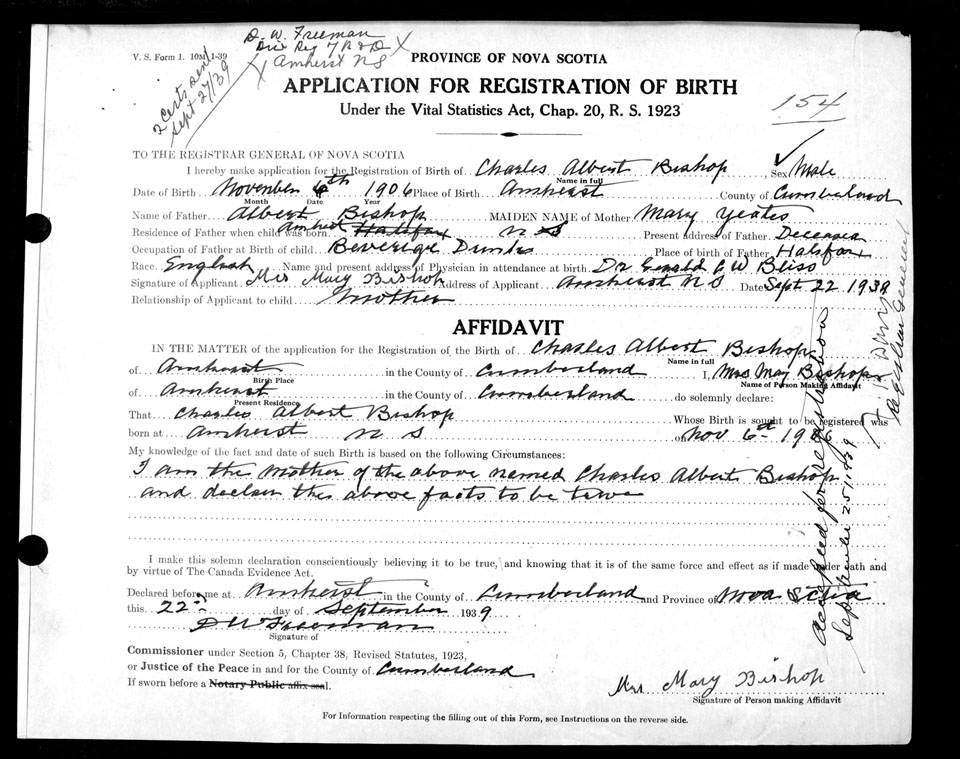 D. W. Freeman
Div Reg
Amherst NS
V. S. Form 1. 10M 1-39
2 Certs sent
Sept 27/39
PROVINCE OF NOVA SCOTIA
APPLICATION FOR REGISTRATION OF BIRTH
Under the Vital Statistics Act, Chap. 20, R. S. 1923
154
TO THE REGISTRAR GENERAL OF NOVA SCOTIA
I hereby make application for Registration of Birth of Charles Albert Bishop Sex Male
Name in full
Date of Birth November 6th 1906 Place of Birth Amherst County of Cumberland
Month Date Year
Name of Father Albert Bishop MAIDEN NAME of Mother Mary Yeates
Residence of Father when child was born Amherst Halifax N S Present address of Father Deceased
Occupation of Father at Birth of child Beverige Drinks Place of birth of Father Halifax
Race. English Name and present address of Physician in attendance at birth Dr C W Bliss
Signature of Applicant Mrs Mary Bishop Address of Applicant Amherst N S Date Sept 22 1939
Relationship of Applicant to child Mother
AFFIDAVIT
IN THE MATTER of the application for the Registration of the Birth of Charles Albert Bishop
Name in full
of Amherst in the County of Cumberland I, Mrs Mary Bishop
Birth Place Name of Person Making Affidavit
of Amherst in the County of Cumberland do solemnly declare:
Present Residence
That Charles Albert Bishop Whose Birth is sought to be registered was
born at Amherst N S on Nov 6th 1906
My knowledge of the fact and date of such Birth is based on the following Circumstances:
I am the mother of the above named Charles Albert Bishop
and declare the above facts to be true
I make this solemn declaration conscientiously believing it to be true, and knowing that it is of the same force and effect as if made under oath and
by virtue of The Canada Evidence Act.
Declared before me at Amherst in the County of Cumberland and Province of Nova Scotia
this 22 day of September 1939
D W Freeman
Signature of
Commissioner under Section 5, Chapter 38, Revised Statutes, 1923,
or Justice of the Peace in and for the County of Cumberland
If sworn before a Notary Public affix seal.
Mrs Mary Bishop
Signature of Person making Affidavit
For Information respecting the filling out of this Form, see Instructions on the reverse side.
Accepted for registration
September 25, 1939
Registrar General